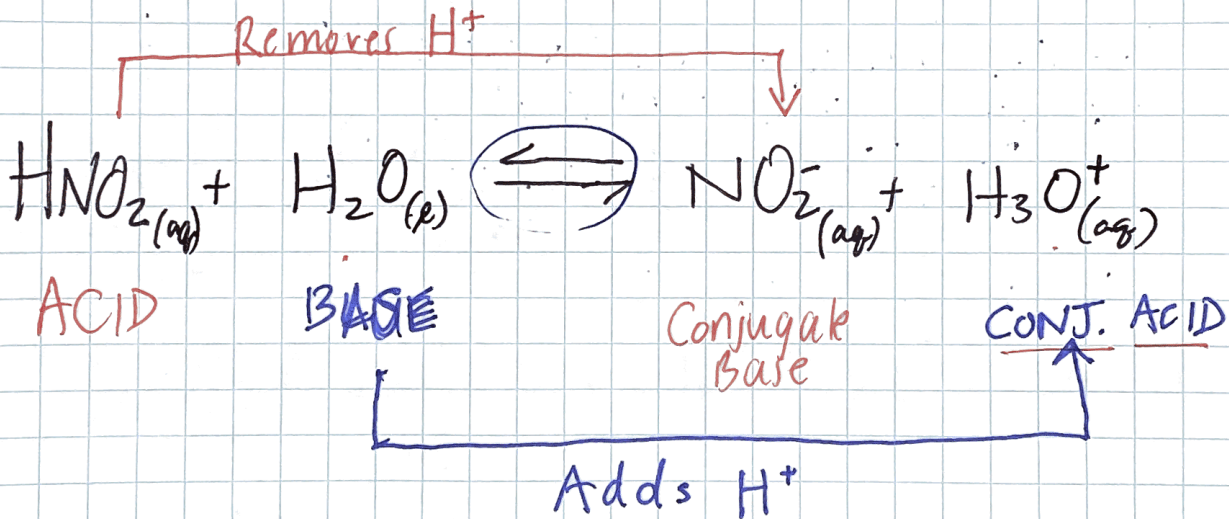 Removes H⁺
HNO₂(aq) + H₂O(l) ⇌ NO₂⁻(aq) + H₃O⁺(aq)
ACID BASE Conjugate Base CONJ. ACID
Adds H⁺